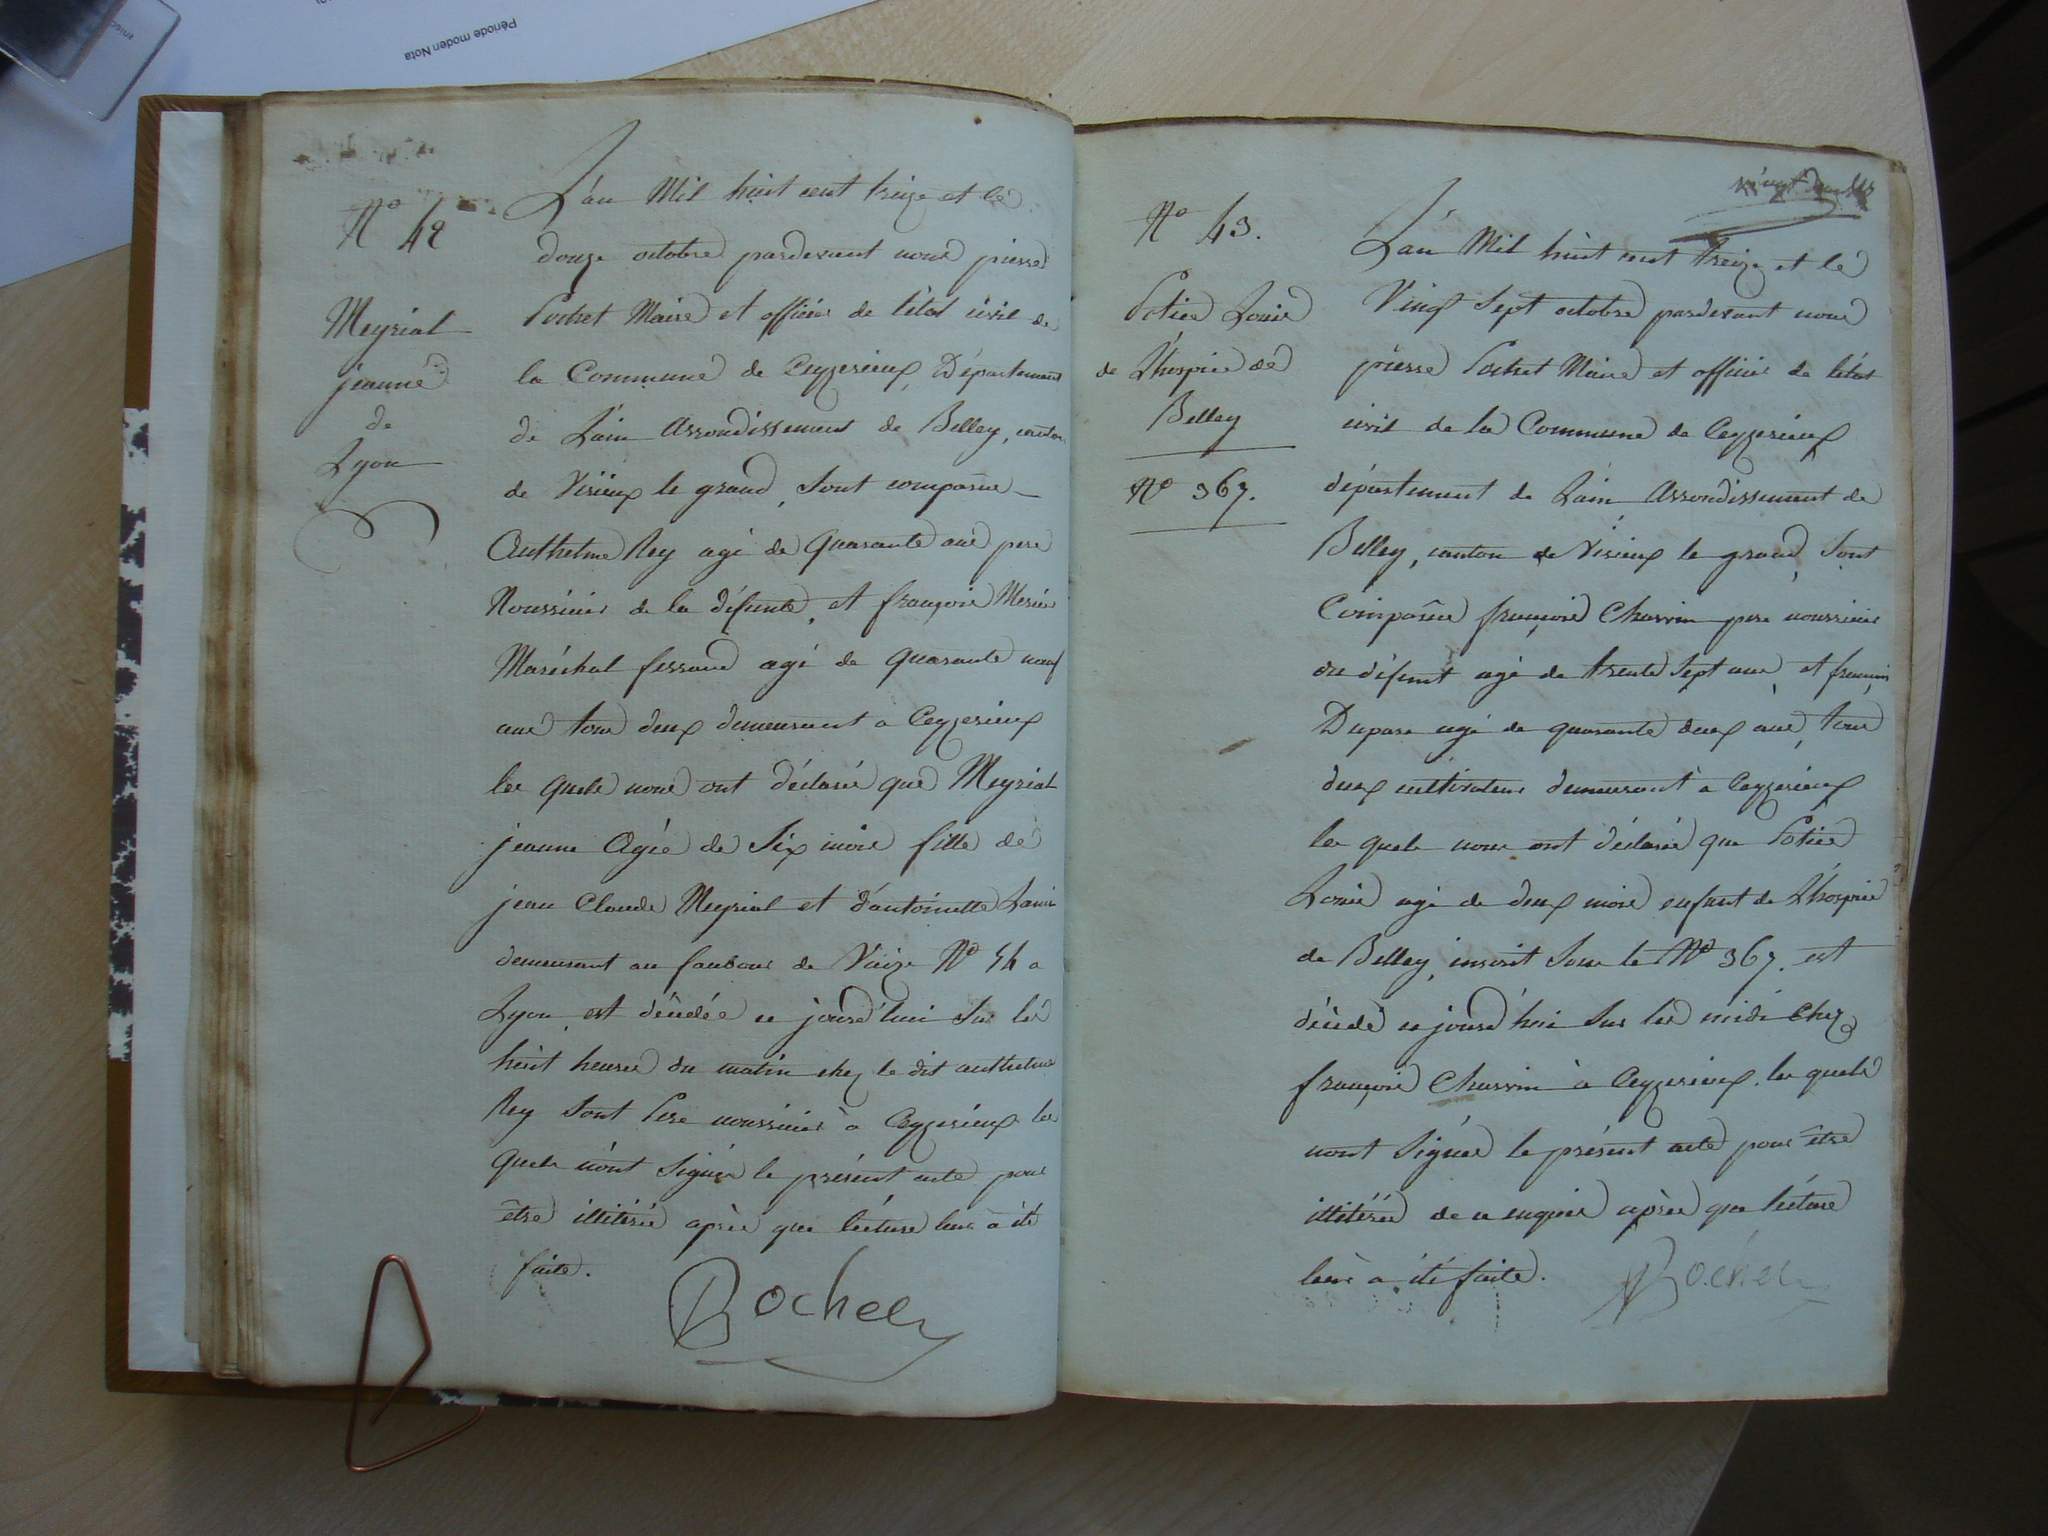 Période moden Nota
N° 42
Meyriat
jeanne
de
Lyon
L'an Mil huit cent treize et le
douze octobre pardevant nous pierre
Pochet Maire et officier de l'état civil de
la Commune de Ceyzerieux, Département
de L'ain Arrondissement de Belley, canton
de Virieux le grand, sont comparus
Anthelme Rey agé de quarante ans pere
Nourricier de la défunte, et françois Mercier
Maréchal ferrand agé de quarante neuf
ans tous deux demeurant a Ceyzerieux
les quels nous ont déclaré que Meyriat
jeanne Agée de six mois fille de
jean Claude Meyriat et d'antoinette
demeurant au faubour de Vaize N° 54 a
Lyon, est décédée ce jourd'hui sur les
huit heures du matin chez le dit anthelme
Rey sont Pere nourricier à Ceyzerieux les
quels n'ont signés le présent acte pour
être illitérés après que lecture leur a été
faite.
Pochet
N° 43.
Potier Louis
de L'hospice de
Belley
N° 367.
vingt deux
L'an Mil huit cent treize et le
Vingt sept octobre pardevant nous
pierre Pochet Maire et officier de l'état
civil de la Commune de Ceyzerieux
département de L'ain, Arrondissement de
Belley, canton de Virieux le grand, sont
Comparus françois Charvin pere nourricier
du défunt agé de trente sept ans et françois
Dupara agé de quarante deux ans, tous
deux cultivateurs demeurant à Ceyzerieux
les quels nous ont déclaré que Potier
Louis agé de deux mois enfant de L'hospice
de Belley, inscrit sous le N° 367. est
décédé ce jourd'hui sur les midi chez
françois Charvin à Ceyzerieux. les quels
n'ont signés le présent acte pour être
illitérés de ce enquis après que lecture
leur a été faite.
Pochet